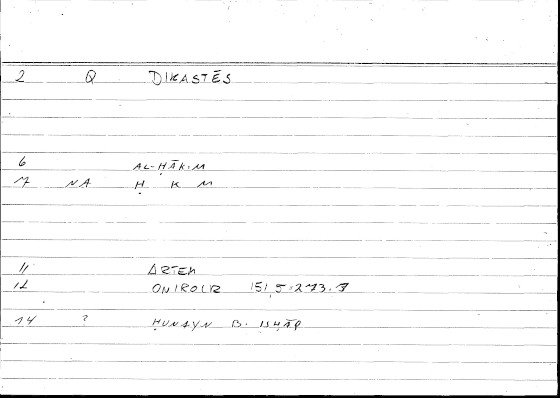 2 Q DIKASTĒS
6 AL-ḤĀKIM
17 NA Ḥ K M
11 ARTEM
12 ONIROCR 151,5=273.7
14 ? ḤUNAYN B. ISḤĀQ